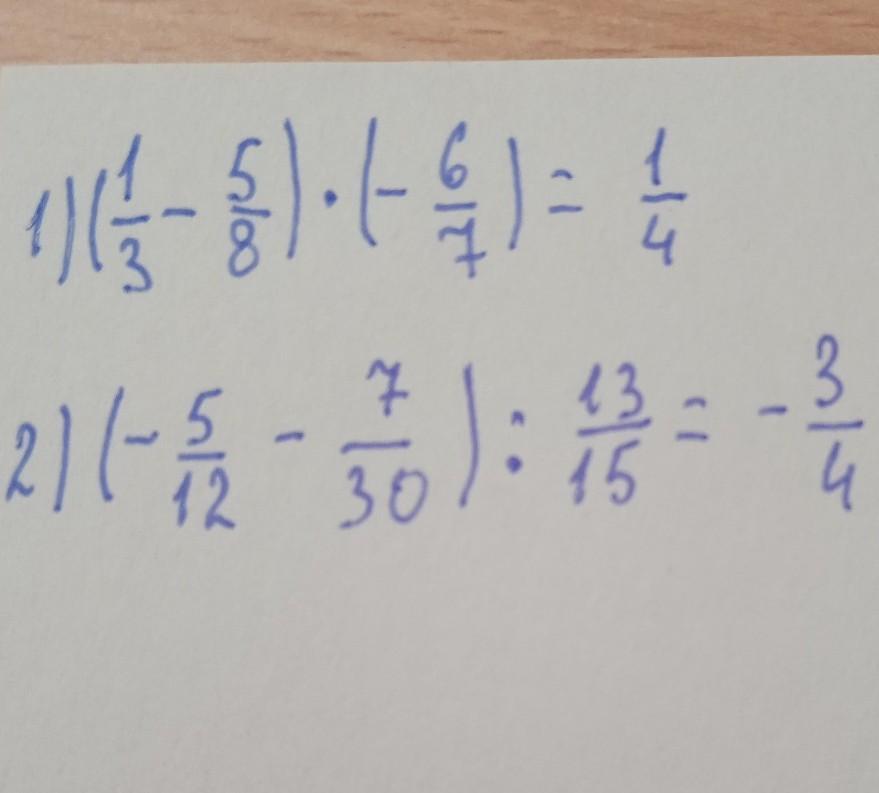 1) (1/3 - 5/8) · (- 6/7) = 1/4
2) (- 5/12 - 7/30) : 13/15 = - 3/4